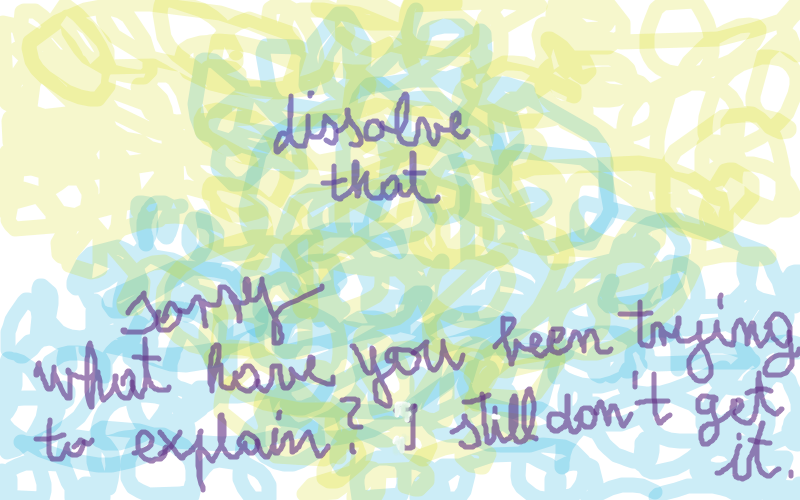 dissolve
that
sorry
what have you been trying
to explain? I still don't get
it.